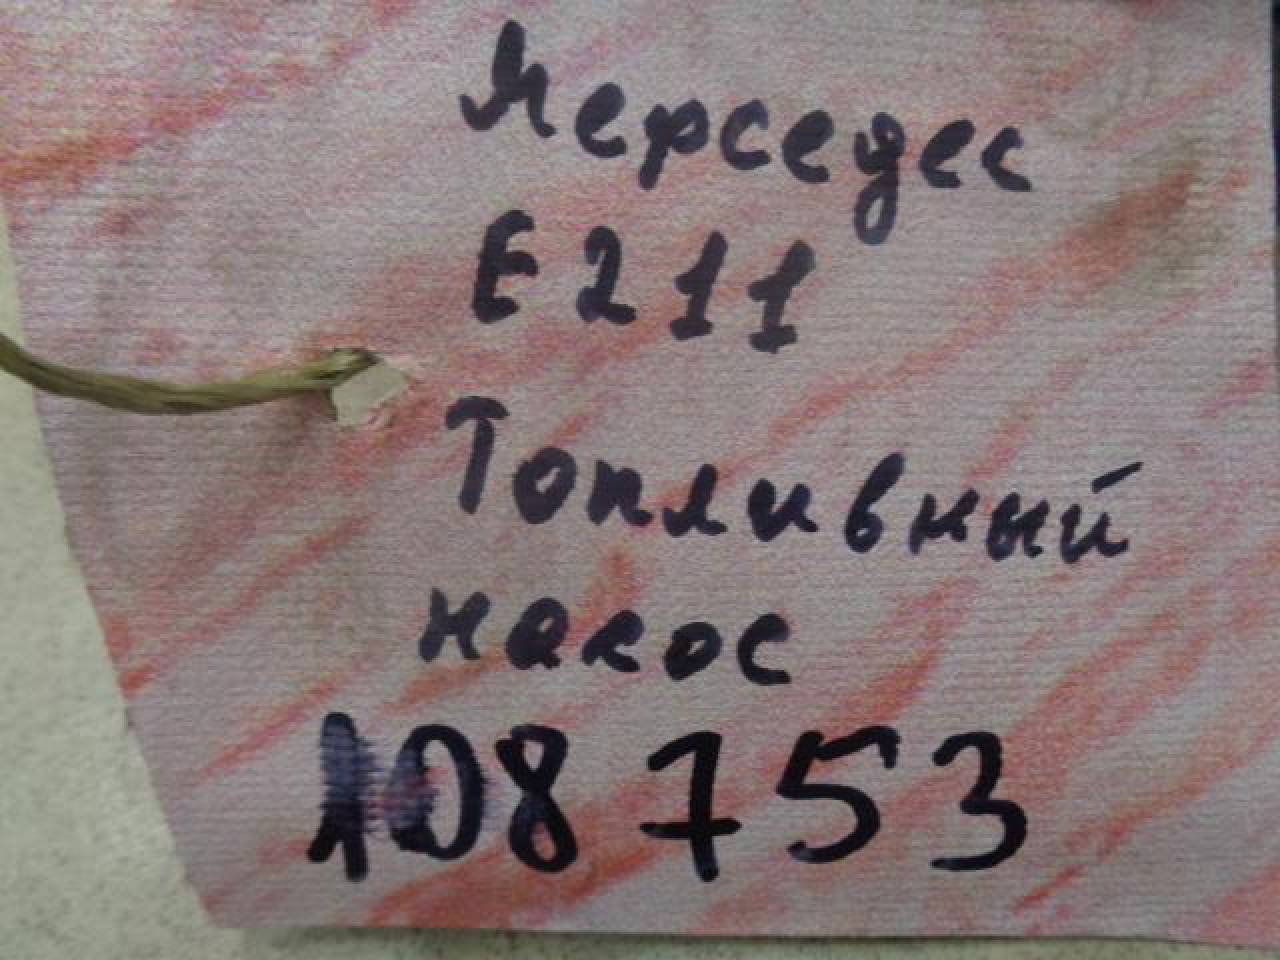 Мерседес
Е 211
Топливный
насос
108753